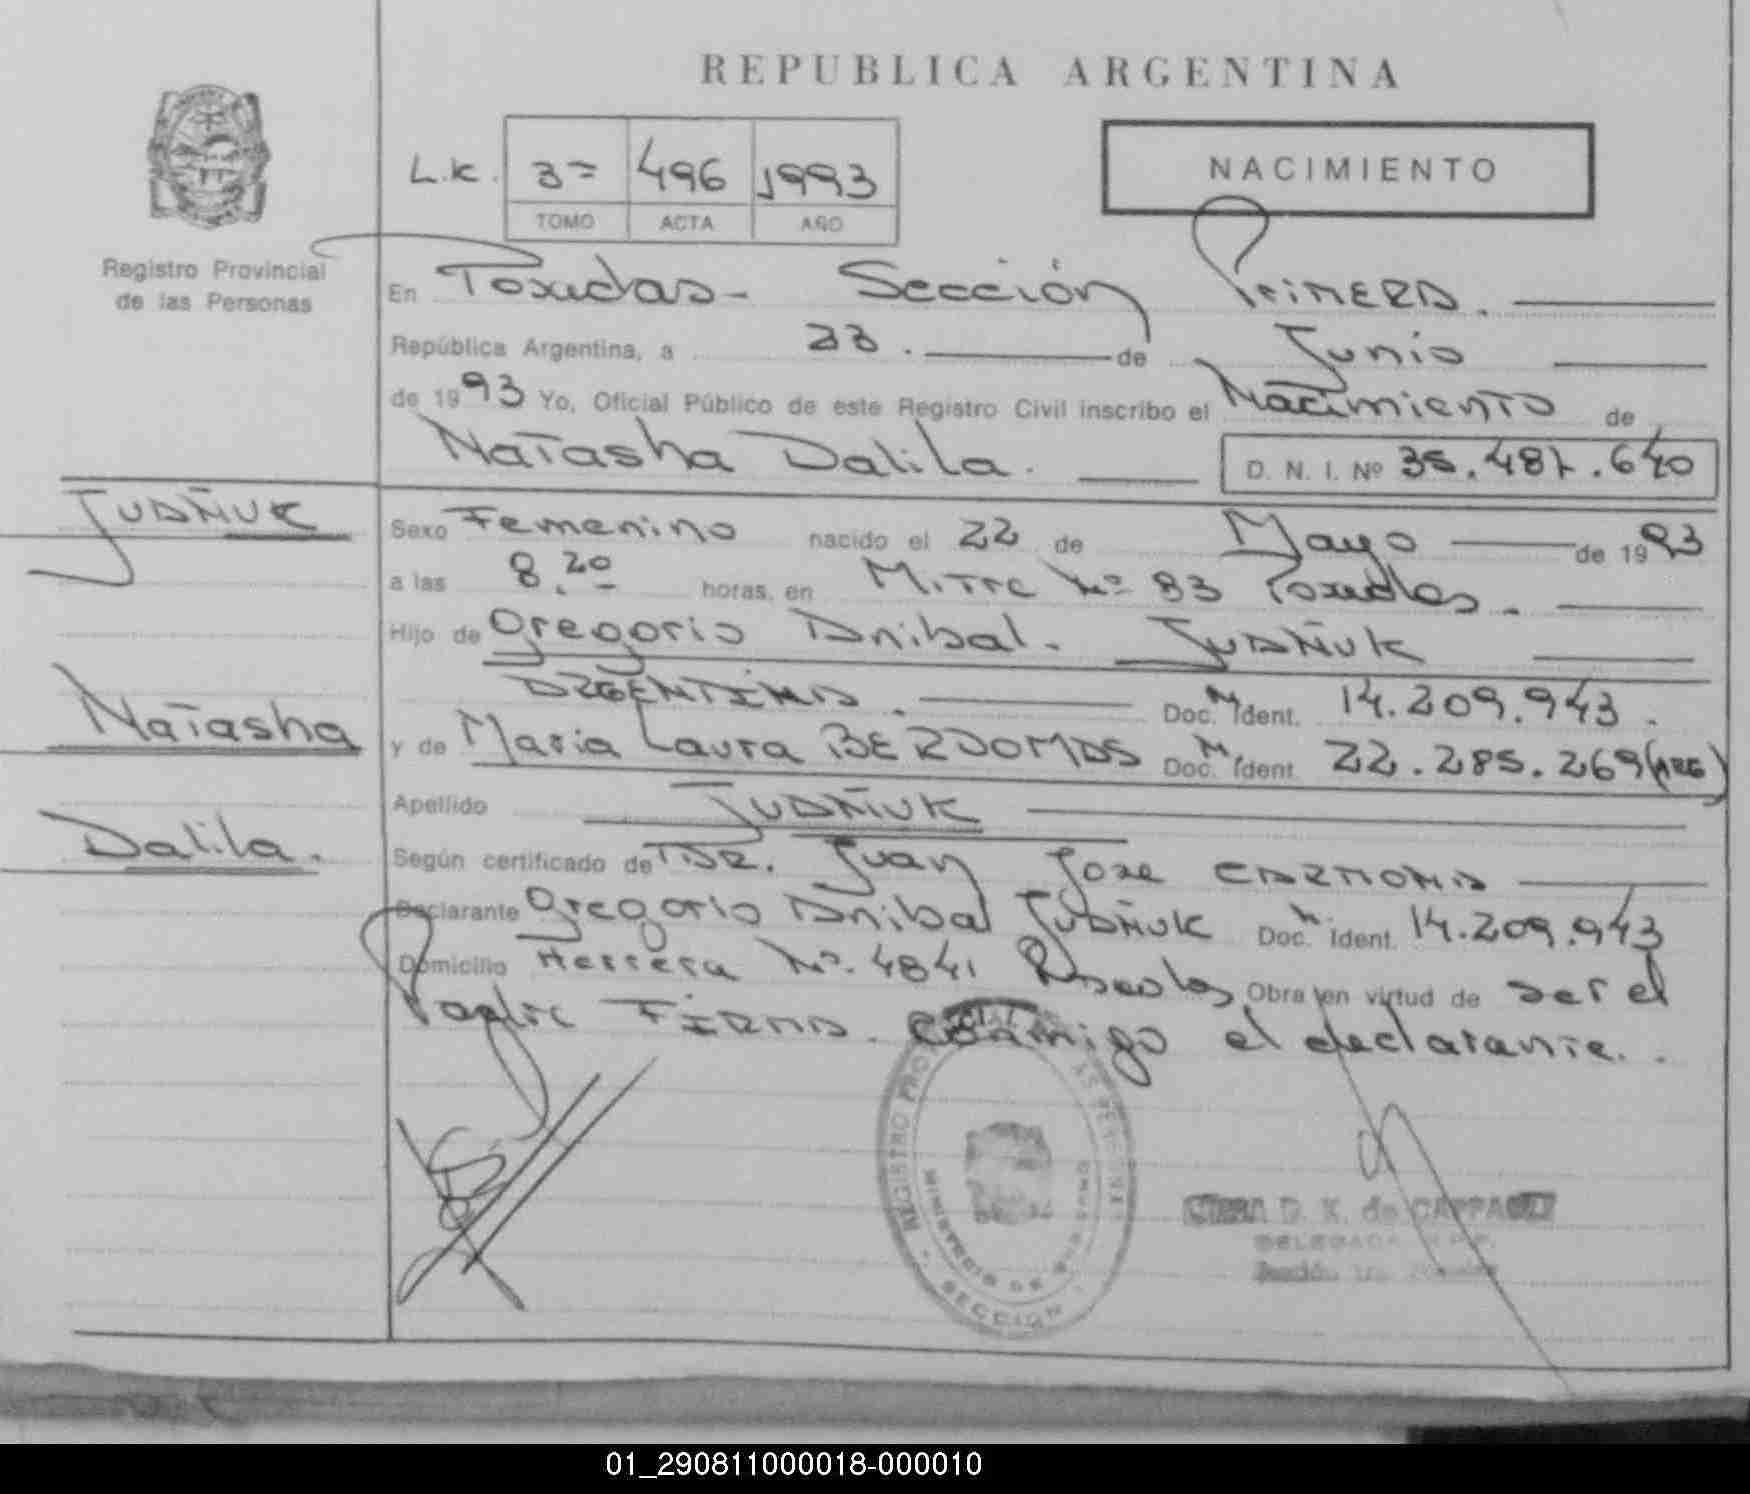 REPUBLICA ARGENTINA
L.K. 3= 496 1993
TOMO ACTA AÑO
NACIMIENTO
Registro Provincial
de las Personas
En Posadas - Sección Primera.
República Argentina, a 23. de Junio
de 1993 Yo, Oficial Público de este Registro Civil inscribo el Nacimiento de
Natasha Dalila. D. N. I. Nº 35.487.640
JUDAÑUK
Sexo Femenino nacido el 22 de Mayo de 1993
a las 8.20 horas, en Mitre Nº 83 Posadas.
Hijo de Gregorio Anibal. JUDAÑUK
ARGENTINA. Doc. M. Ident. 14.209.943.
Natasha
y de Maria Laura BERDOMAS Doc. M. Ident. 22.285.269 (ARG)
Apellido JUDAÑUK
Dalila.
Según certificado de DR. Juan Jose CARMONA
Declarante Gregorio Anibal JUDAÑUK Doc. M. Ident. 14.209.943
Domicilio Herrera Nº. 4841 Posadas Obra en virtud de ser el
Padre FIRMA. Conmigo el declarante.
REGISTRO PROVINCIAL DE LAS PERSONAS
MINISTERIO DE GOBIERNO
SECCION
D. K. de
DELEGADA R.P.P.
01_290811000018-000010